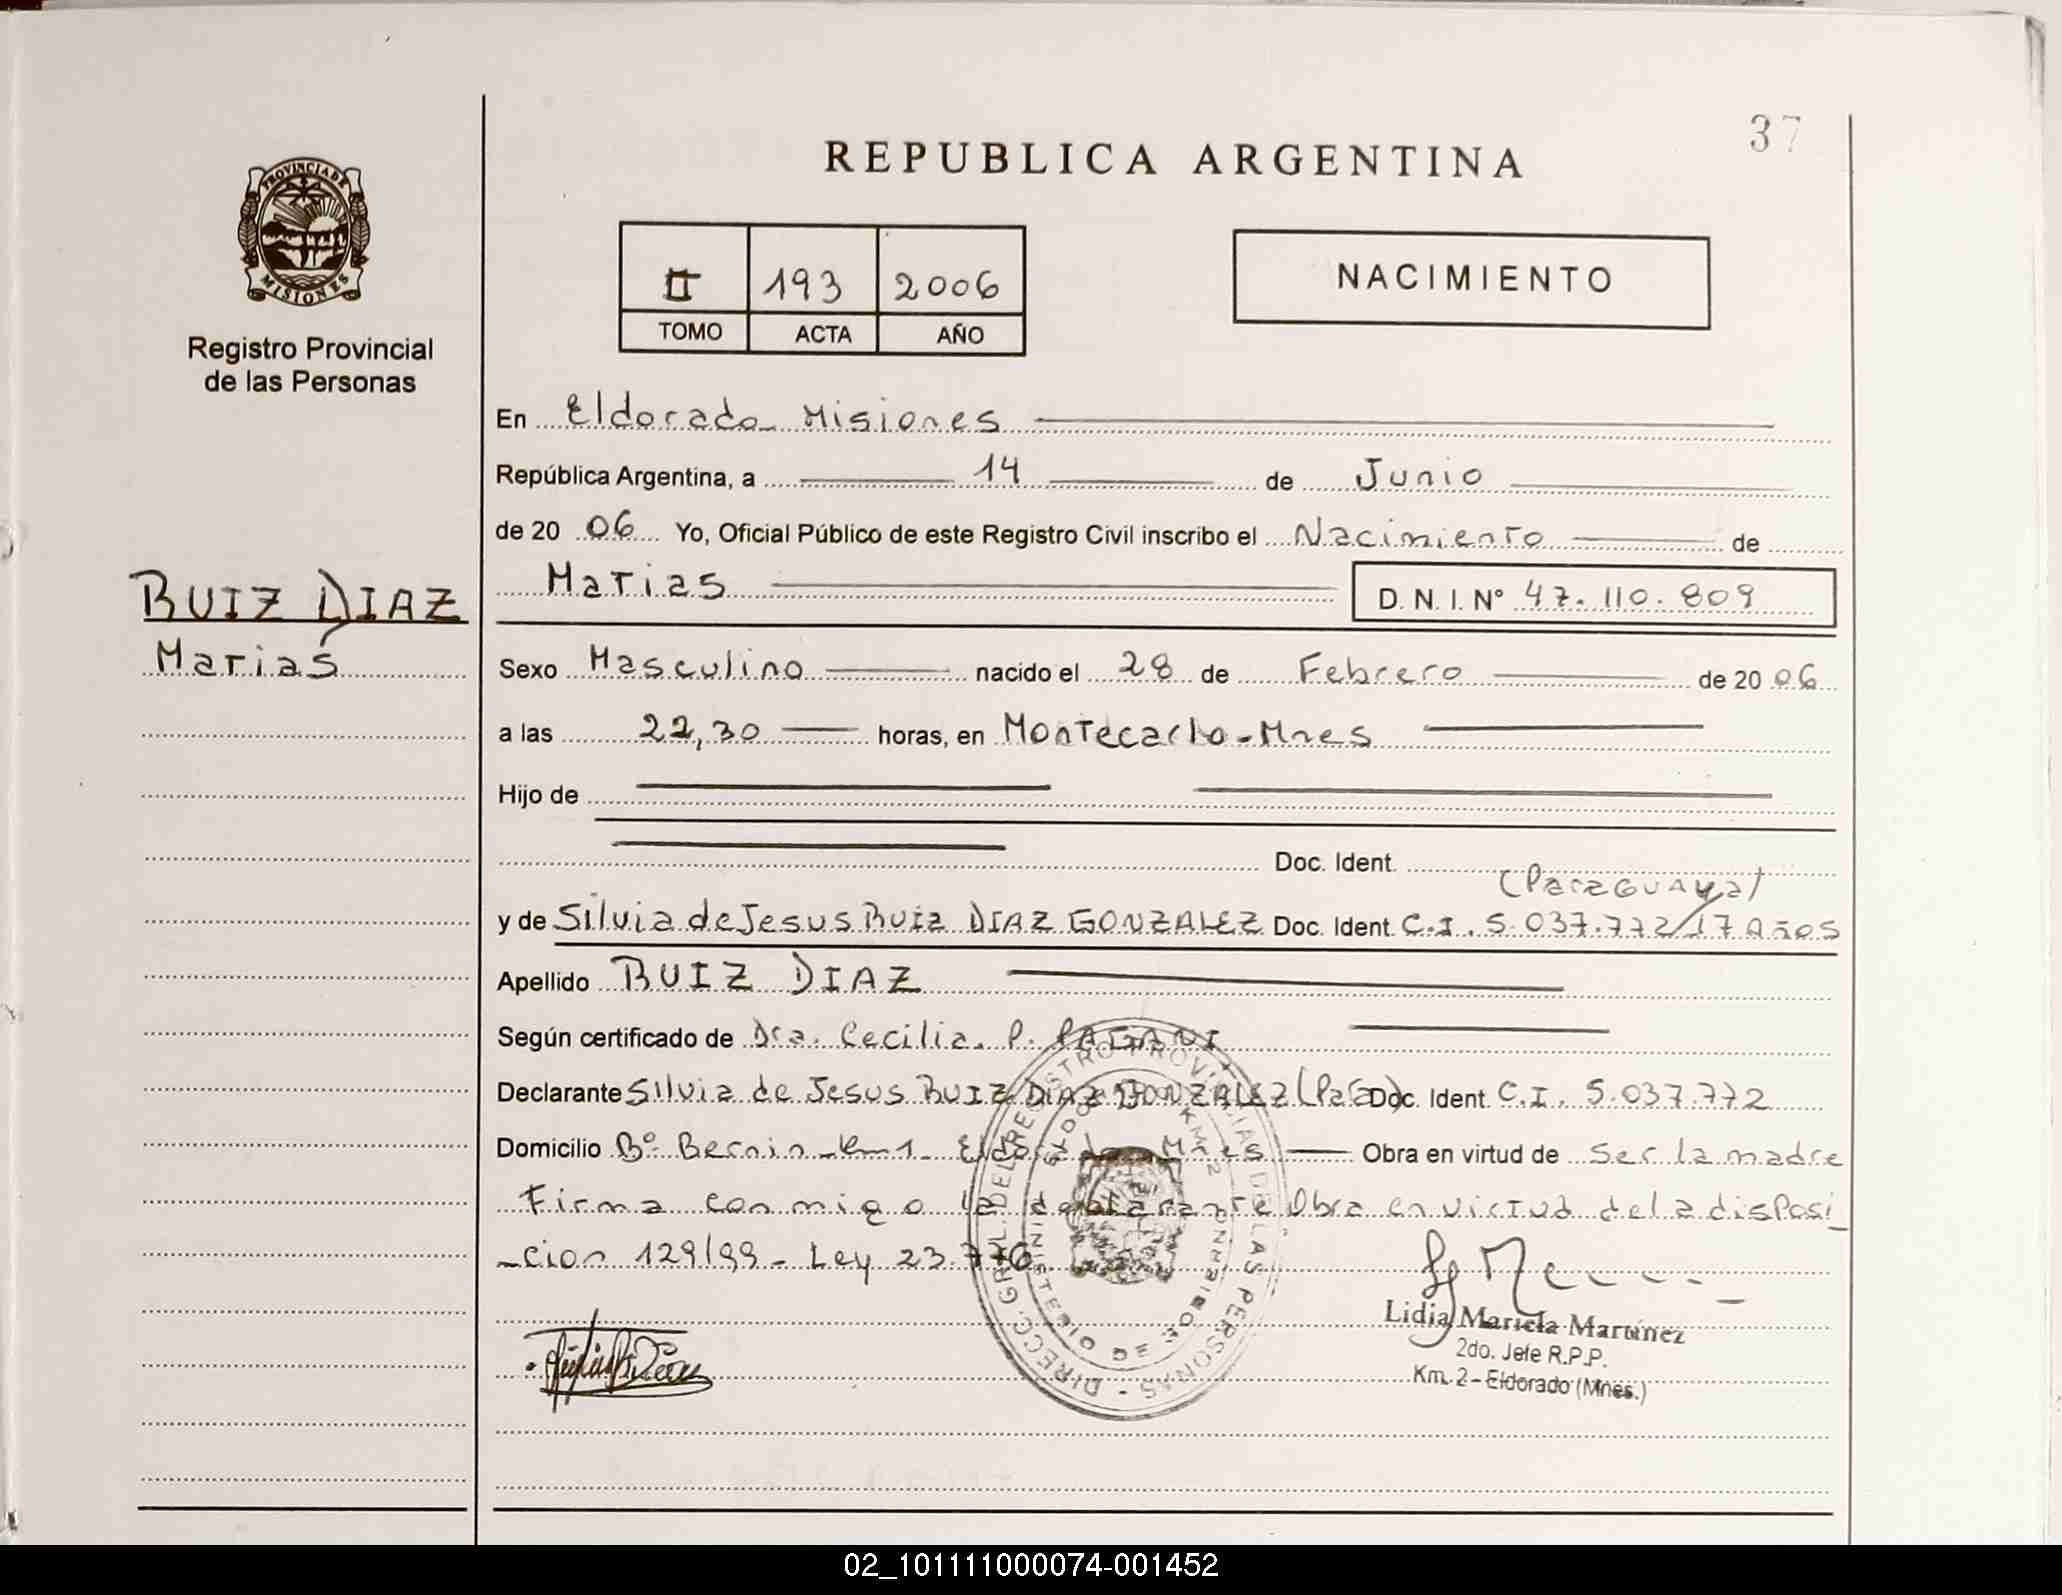 37
REPUBLICA ARGENTINA
PROVINCIA DE
MISIONES
Registro Provincial
de las Personas
II 193 2006
TOMO ACTA AÑO
NACIMIENTO
En Eldorado Misiones
República Argentina, a 14 de Junio
de 20 06 Yo, Oficial Público de este Registro Civil inscribo el Nacimiento de
RUIZ DIAZ
Matias
Matias D. N. I. N° 47.110.809
Sexo Masculino nacido el 28 de Febrero de 20 06
a las 22,30 horas, en Montecarlo - Mnes
Hijo de
Doc. Ident.
(Paraguaya)
y de Silvia de Jesus Ruiz DIAZ GONZALEZ Doc. Ident. C.I. 5.037.772/17 Años
Apellido RUIZ DIAZ
Según certificado de Dra. Cecilia. P. PAGANI
Declarante Silvia de Jesus RUIZ DIAZ GONZALEZ (Para) Doc. Ident. C.I. 5.037.772
Domicilio B° Bernin - Km 1 - Eldorado Mnes Obra en virtud de Ser la madre
Firma conmigo la declarante Obra en virtud de la disposi
-cion 129/99 - Ley 23.776
DIRECC. GRAL. DEL REGISTRO PROVINCIAL DE LAS PERSONAS -
MINISTERIO DE GOBIERNO
ELDORADO KM 2
Lidia Mariela Martinez
2do. Jefe R.P.P.
Km. 2 - Eldorado (Mnes.)
02_101111000074-001452